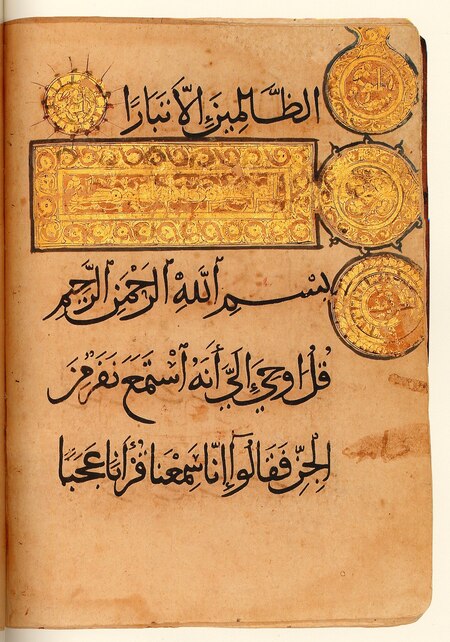 الظَّالِمِينَ إِلَّا تَبَارًا
بِسْمِ اللَّهِ الرَّحْمَنِ الرَّحِيمِ
قُلْ أُوحِيَ إِلَيَّ أَنَّهُ ٱسْتَمَعَ نَفَرٌ مِّنَ
الْجِنِّ فَقَالُوا إِنَّا سَمِعْنَا قُرْآنًا عَجَبًا